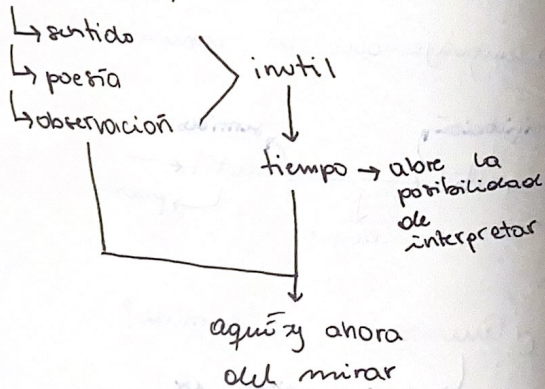 ↳ sentido
↳ poesía
↳ observación
inutil
tiempo → abre la
posibilidad
de
interpretar
aquí y ahora
del mirar